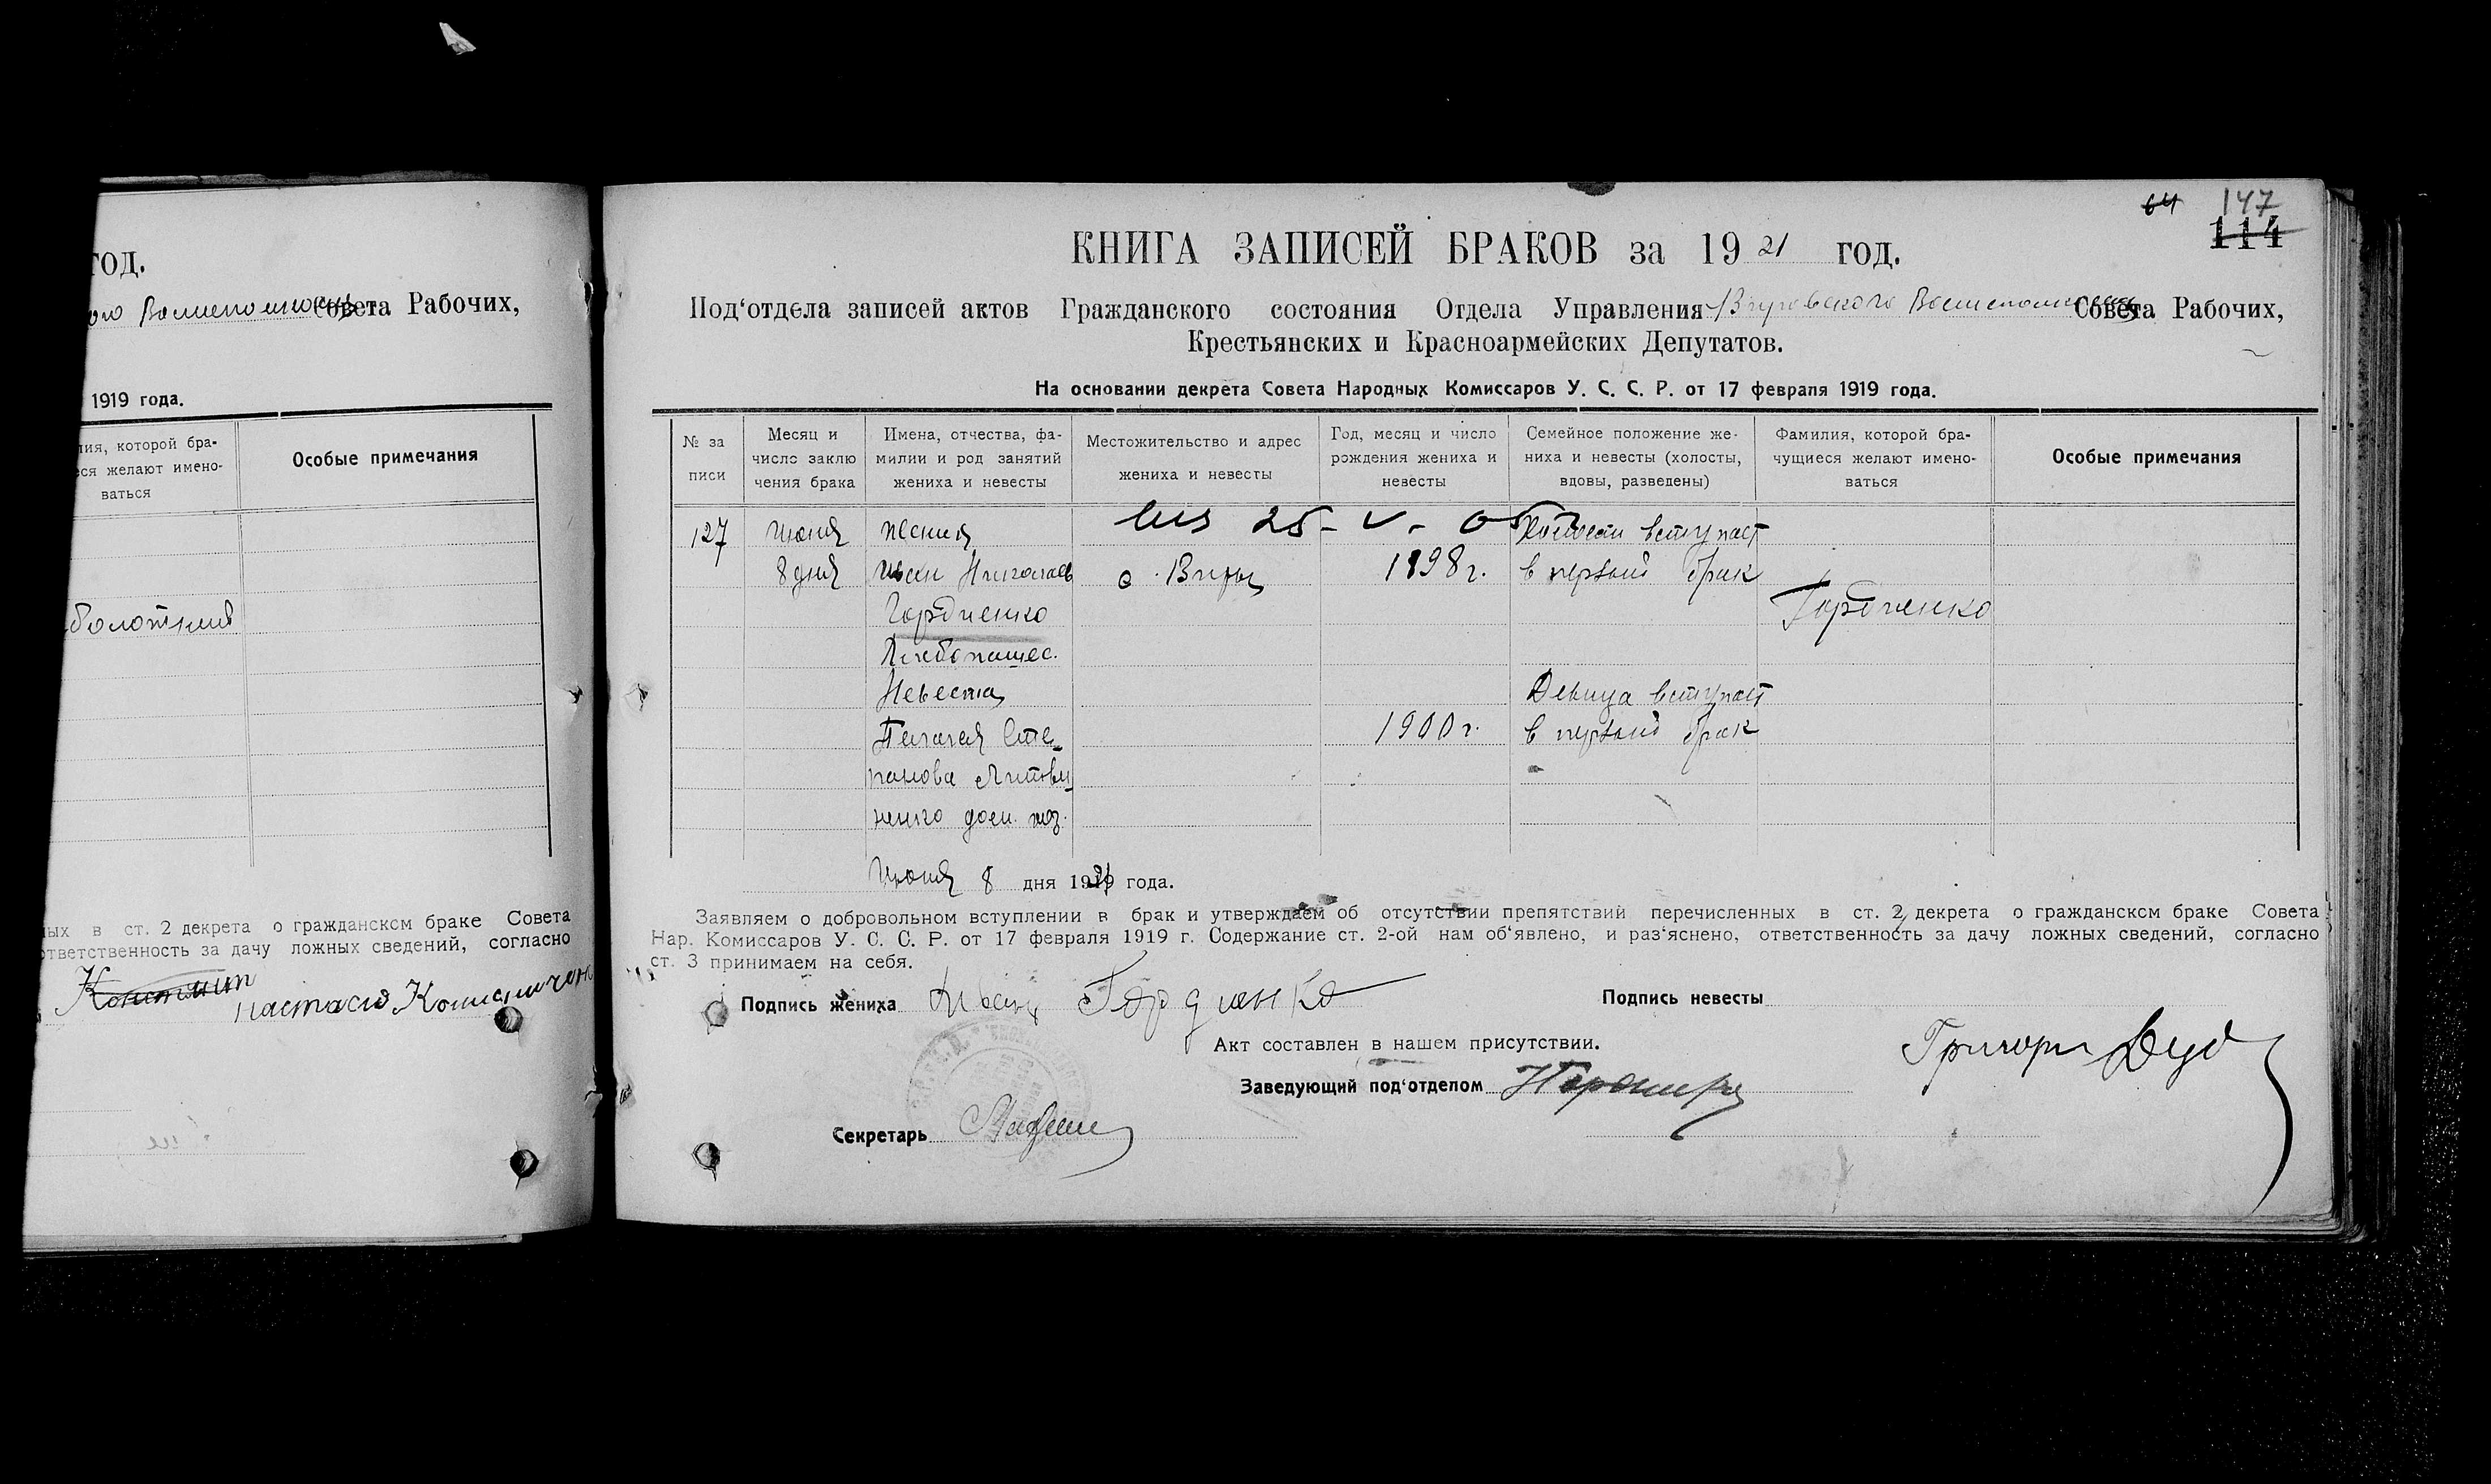 год.
Совета Рабочих,
1919 года.
лия, которой бра-
еся желают имено-
ваться
Особые примечания
ных в ст. 2 декрета о гражданском браке Совета
ответственность за дачу ложных сведений, согласно
64 147
114
КНИГА ЗАПИСЕЙ БРАКОВ за 1921 год.
Под'отдела записей актов Гражданского состояния Отдела Управления Совета Рабочих,
Крестьянских и Красноармейских Депутатов.
На основании декрета Совета Народных Комиссаров У. С. С. Р. от 17 февраля 1919 года.
№ за
писи
Месяц и
число заклю
чения брака
Имена, отчества, фа-
милии и род занятий
жениха и невесты
Местожительство и адрес
жениха и невесты
Год, месяц и число
рождения жениха и
невесты
Семейное положение же-
ниха и невесты (холосты,
вдовы, разведены)
Фамилия, которой бра-
чущиеся желают имено-
ваться
Особые примечания
127 июня 25-V-05 вступает
8 дня Николаев с. Виры 1898 г. в первый брак
Гордиенко Гордиенко
Хлебопашес.
Невеста Девица вступает
Пелагея Сте- 1900 г. в первый брак
панова Литви-
ненко дом. хоз.
Июня 8 дня 1921 года.
Заявляем о добровольном вступлении в брак и утверждаем об отсутствии препятствий перечисленных в ст. 2 декрета о гражданском браке Совета
Нар. Комиссаров У. С. С. Р. от 17 февраля 1919 г. Содержание ст. 2-ой нам об'явлено, и раз'яснено, ответственность за дачу ложных сведений, согласно
ст. 3 принимаем на себя.
Подпись жениха Иван Гордиенко Подпись невесты
Акт составлен в нашем присутствии.
Заведующий под'отделом
Секретарь